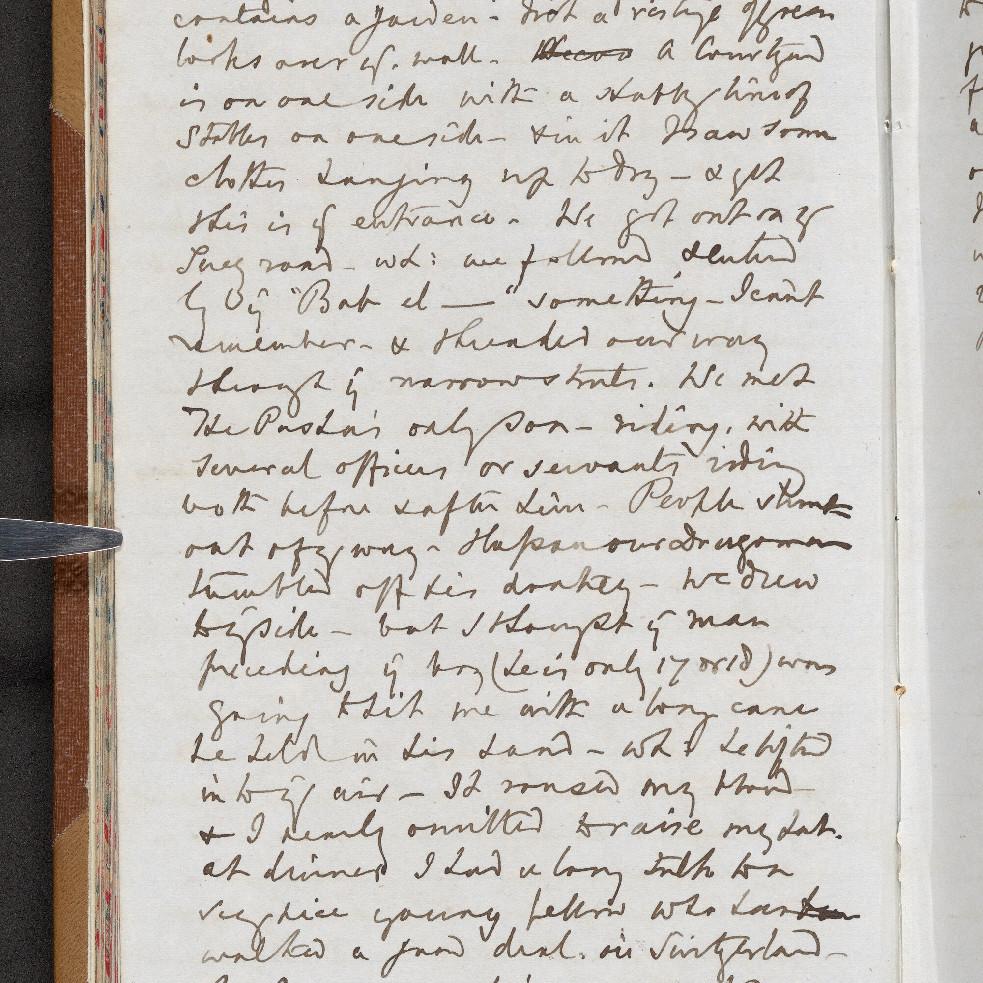 contains a garden - Not a vestige of green
looks over ye. wall - A Courtyard
is on one side with a shabby line of
Stables on one side - & in it I saw some
clothes hanging up to dry - & yet
this is ye entrance - We got out on ye
Suez road - wh: we followed & entered
by ye "Bab el — " something - I cant
remember - & threaded our way
through ye narrow streets. We met
The Pasha's only son - riding, with
several officers or servants riding
both before & after him - People
out of ye way - Hassan our Dragoman
tumbled off his donkey - We drew
to ye side - but I thought ye man
preceding ye boy (he is only 17 or 18) was
going to hit me with a long cane
he held in his hand - wh: he lifted
into ye air - It roused my blood
& I nearly omitted to raise my hat.
at dinner I had a long talk to a
very nice young fellow who has
walked a good deal in Switzerland -